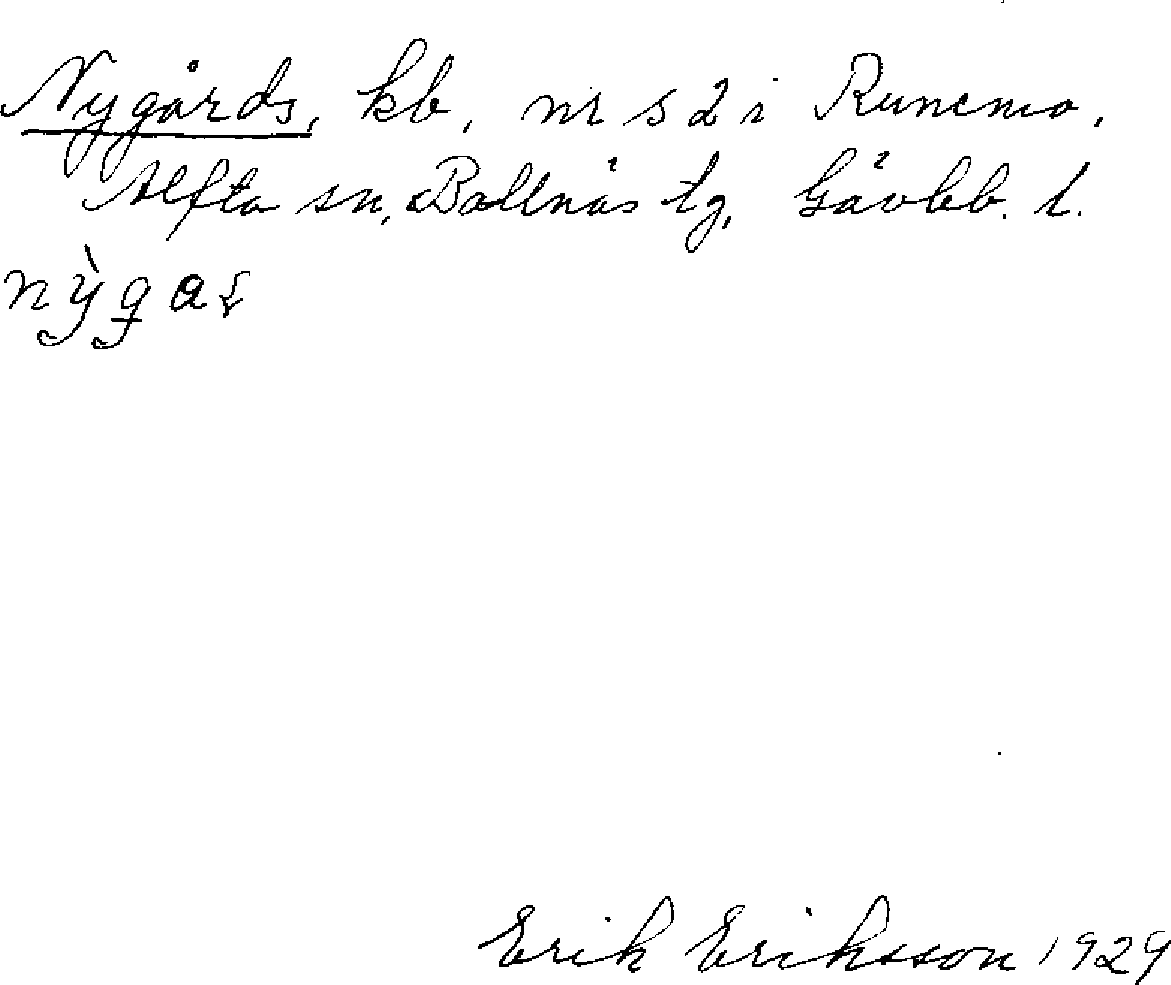 Nygårds, kb, nr s 2 i Runemo,
Alfta sn, Bollnäs tg, Gävleb. l.
nỳgaʂ
Erik Eriksson 1929